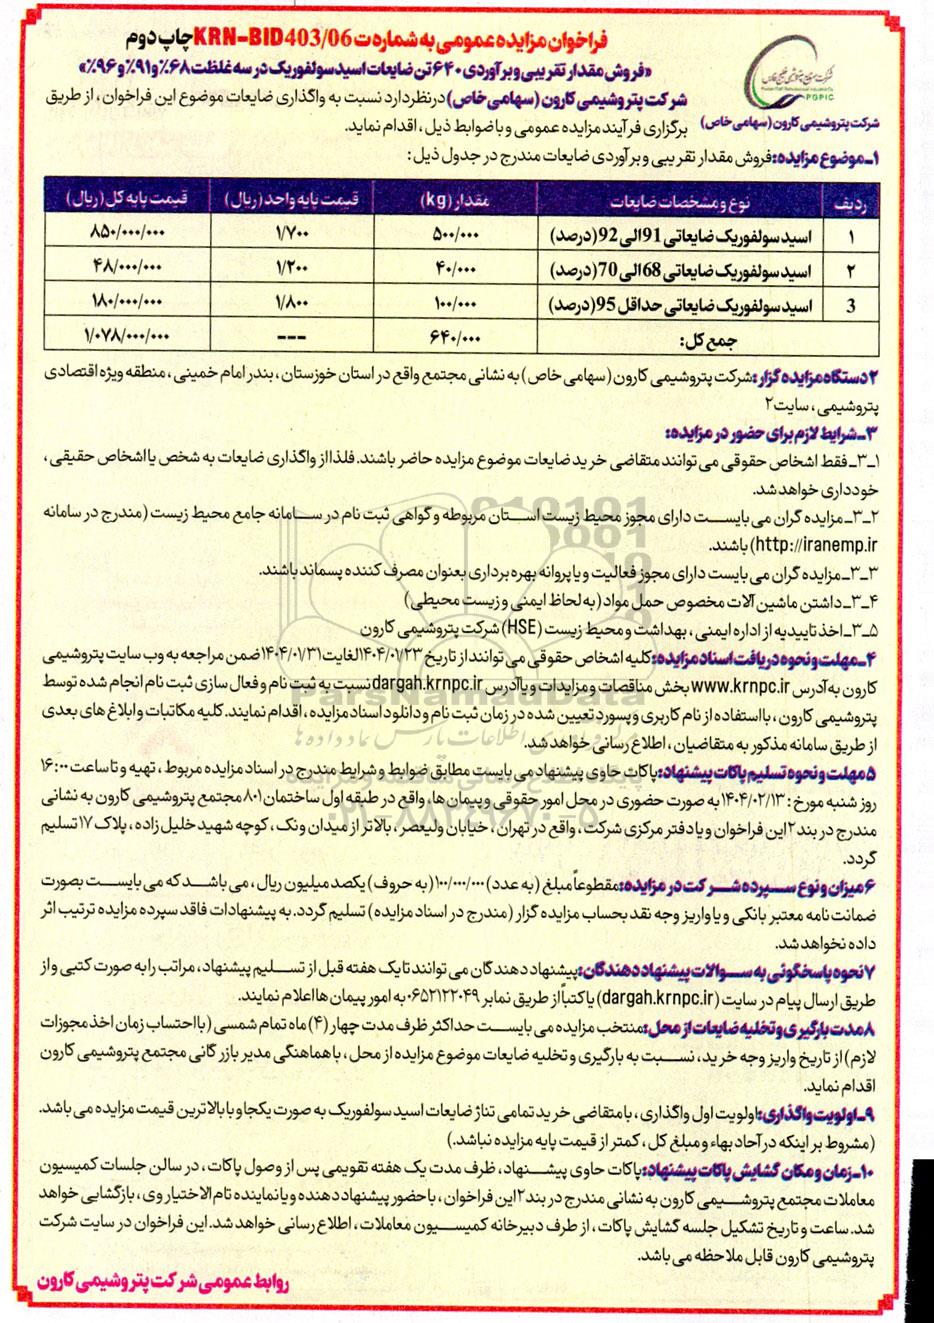 فراخوان مزایده عمومی به شماره ت KRN-BID403/06 چاپ دوم
«فروش مقدار تقریبی و برآوردی ۶۴۰ تن ضایعات اسید سولفوریک در سه غلظت ۶۸٪ و ۹۱٪ و ۹۶٪»
PGPIC
شرکت پتروشیمی کارون (سهامی خاص)
شرکت پتروشیمی کارون (سهامی خاص) در نظر دارد نسبت به واگذاری ضایعات موضوع این فراخوان، از طریق
برگزاری فرآیند مزایده عمومی و با ضوابط ذیل، اقدام نماید.
۱ـ موضوع مزایده: فروش مقدار تقریبی و برآوردی ضایعات مندرج در جدول ذیل:
ردیف نوع و مشخصات ضایعات مقدار (kg) قیمت پایه واحد (ریال) قیمت پایه کل (ریال)
۱ اسید سولفوریک ضایعاتی 91 الی 92 (درصد) ۵۰۰/۰۰۰ ۱/۷۰۰ ۸۵۰/۰۰۰/۰۰۰
۲ اسید سولفوریک ضایعاتی 68 الی 70 (درصد) ۴۰/۰۰۰ ۱/۲۰۰ ۴۸/۰۰۰/۰۰۰
3 اسید سولفوریک ضایعاتی حداقل 95 (درصد) ۱۰۰/۰۰۰ ۱/۸۰۰ ۱۸۰/۰۰۰/۰۰۰
جمع کل: ۶۴۰/۰۰۰ --- ۱/۰۷۸/۰۰۰/۰۰۰
۲ دستگاه مزایده گزار: شرکت پتروشیمی کارون (سهامی خاص) به نشانی مجتمع واقع در استان خوزستان، بندر امام خمینی، منطقه ویژه اقتصادی
پتروشیمی، سایت ۲
۳ـ شرایط لازم برای حضور در مزایده:
۳ـ۱ـ فقط اشخاص حقوقی می توانند متقاضی خرید ضایعات موضوع مزایده حاضر باشند. فلذا از واگذاری ضایعات به شخص یا اشخاص حقیقی،
خودداری خواهد شد.
۳ـ۲ـ مزایده گران می بایست دارای مجوز محیط زیست استان مربوطه و گواهی ثبت نام در سامانه جامع محیط زیست (مندرج در سامانه
http://iranemp.ir) باشند.
۳ـ۳ـ مزایده گران می بایست دارای مجوز فعالیت و یا پروانه بهره برداری بعنوان مصرف کننده پسماند باشند.
۳ـ۴ـ داشتن ماشین آلات مخصوص حمل مواد (به لحاظ ایمنی و زیست محیطی)
۳ـ۵ـ اخذ تاییدیه از اداره ایمنی، بهداشت و محیط زیست (HSE) شرکت پتروشیمی کارون
۴ـ مهلت و نحوه دریافت اسناد مزایده: کلیه اشخاص حقوقی می توانند از تاریخ ۱۴۰۴/۰۱/۲۳ لغایت ۱۴۰۴/۰۱/۳۱ ضمن مراجعه به وب سایت پتروشیمی
کارون به آدرس www.krnpc.ir بخش مناقصات و مزایدات و یا آدرس dargah.krnpc.ir نسبت به ثبت نام و فعال سازی ثبت نام انجام شده توسط
پتروشیمی کارون، با استفاده از نام کاربری و پسورد تعیین شده در زمان ثبت نام و دانلود اسناد مزایده، اقدام نمایند. کلیه مکاتبات و ابلاغ های بعدی
از طریق سامانه مذکور به متقاضیان، اطلاع رسانی خواهد شد.
۵ مهلت و نحوه تسلیم پاکات پیشنهاد: پاکات حاوی پیشنهاد می بایست مطابق ضوابط و شرایط مندرج در اسناد مزایده مربوط، تهیه و تا ساعت ۱۶:۰۰
روز شنبه مورخ: ۱۴۰۴/۰۲/۱۳ به صورت حضوری در محل امور حقوقی و پیمان ها، واقع در طبقه اول ساختمان ۸۰۱ مجتمع پتروشیمی کارون به نشانی
مندرج در بند ۲ این فراخوان و یا دفتر مرکزی شرکت، واقع در تهران، خیابان ولیعصر، بالاتر از میدان ونک، کوچه شهید خلیل زاده، پلاک ۱۷ تسلیم
گردد.
۶ میزان و نوع سپرده شرکت در مزایده: مقطوعاً مبلغ (به عدد) ۱۰۰/۰۰۰/۰۰۰ (به حروف) یکصد میلیون ریال، می باشد که می بایست بصورت
ضمانت نامه معتبر بانکی و یا واریز وجه نقد بحساب مزایده گزار (مندرج در اسناد مزایده) تسلیم گردد. به پیشنهادات فاقد سپرده مزایده ترتیب اثر
داده نخواهد شد.
۷ نحوه پاسخگوئی به سوالات پیشنهاد دهندگان: پیشنهاد دهندگان می توانند تا یک هفته قبل از تسلیم پیشنهاد، مراتب را به صورت کتبی و از
طریق ارسال پیام در سایت (dargah.krnpc.ir) یا کتباً از طریق نمابر ۰۶۵۲۱۲۲۰۴۹ به امور پیمان ها اعلام نمایند.
۸ مدت بارگیری و تخلیه ضایعات از محل: منتخب مزایده می بایست حداکثر ظرف مدت چهار (۴) ماه تمام شمسی (با احتساب زمان اخذ مجوزات
لازم) از تاریخ واریز وجه خرید، نسبت به بارگیری و تخلیه ضایعات موضوع مزایده از محل، با هماهنگی مدیر بازرگانی مجتمع پتروشیمی کارون
اقدام نماید.
۹ـ اولویت واگذاری: اولویت اول واگذاری، با متقاضی خرید تمامی تناژ ضایعات اسید سولفوریک به صورت یکجا و با بالاترین قیمت مزایده می باشد.
(مشروط بر اینکه در آحاد بهاء و مبلغ کل، کمتر از قیمت پایه مزایده نباشد.)
۱۰ـ زمان و مکان گشایش پاکات پیشنهاد: پاکات حاوی پیشنهاد، ظرف مدت یک هفته تقویمی پس از وصول پاکات، در سالن جلسات کمیسیون
معاملات مجتمع پتروشیمی کارون به نشانی مندرج در بند ۲ این فراخوان، با حضور پیشنهاد دهنده و یا نماینده تام الاختیار وی، بازگشایی خواهد
شد. ساعت و تاریخ تشکیل جلسه گشایش پاکات، از طرف دبیرخانه کمیسیون معاملات، اطلاع رسانی خواهد شد. این فراخوان در سایت شرکت
پتروشیمی کارون قابل ملاحظه می باشد.
روابط عمومی شرکت پتروشیمی کارون